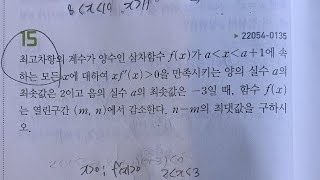 8<x<10, x>11
15
22054-0135
최고차항의 계수가 양수인 삼차함수 f(x)가 a<x<a+1에 속
하는 모든 x에 대하여 xf'(x)>0을 만족시키는 양의 실수 a의
최솟값은 2이고 음의 실수 a의 최솟값은 -3일 때, 함수 f(x)
는 열린구간 (m, n)에서 감소한다. n-m의 최댓값을 구하시
오.
2<x<3